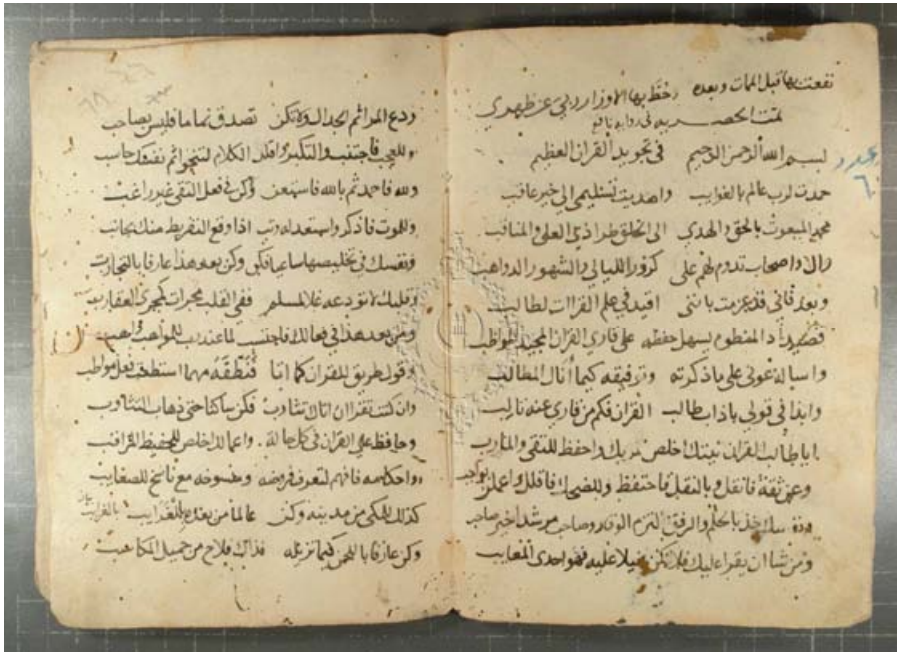 نفعت بها قبل الممات وبعده وحط بها الاوزار ربي عن ظهري
تمت الحصريه في روايه نافع
بسم الله الرحمن الرحيم في تجويد القران العظيم
عدد
٦
حمدت لرب عالم بالغوايب واهديت تسليمي الى خير عاقب
محمد المبعوث بالحق والهدي الى الخلق طرا ذي العلى والمناقب
وال واصحاب تدوم لهم على كرور الليالي والشهور الدواهب
وبعد فاني قد عزمت بانني افيد في علم القرات لطالب
قصيدا المنظوم يسهل حفظه على قاري القران المجيد المواظب
واساله عوني على ما ذكرته وتوفيقه كيما أنال المطالب
وابدا في قولي باداب طالب القران فكم من قاري عنه نادب
ايا طالب القران نيتك اخلص لربك واحفظ للتقى والمادب
وعن ثقة فانقل وبالنقل فاحتفظ وللضحك فاقلل واعملن بواجب
خذ بالحلم والرفق التزم الوقار وصاحب مرشدا خير صاحب
ومن شا ان يقرا عليك فلا تكن عليه فهو احدى المعايب
ودع المرا ثم الجدال ولا تكن تصدق نماما فليس بصاحب
وللعجب فاجتنب والتكبر واقلل الكلام لتنجو ثم نفسك حاسب
ولله فاحمد ثم بالله فاستعن وكن في فعل التقى غير راغب
وللموت فاذكر واستعد له وتب اذا وقع التفريط منك بجانب
ونفسك في تخليصها ساعيا فكن وكن بعد هذا عارفا بالتجارب
وقلبك لا تودعه غلا لمسلم ففي القلب مجراه كمجرى العقارب
ومن بعد هذا في فاجتنب لما عند رب للمواهب واهب
وقول طريق للقران كما اتا فنظفه مهما استطعت بفعل مواظب
وان كنت تقرا ان اتاك تثاوب فكن ساكتا حتى ذهاب التثاوب
وحافظ على القران في كل حالة واعمالك اخلص للحفيظ المراقب
واحكامه فافهم لتعرف فروضه ومنسوخه مع ناسخ للصعايب
كذلك المكي من مدينه وكن عالما من بعد بالغرايب
وكن عارفا باللحن كيما تزيله فذاك فلاح من جميل المكاسب